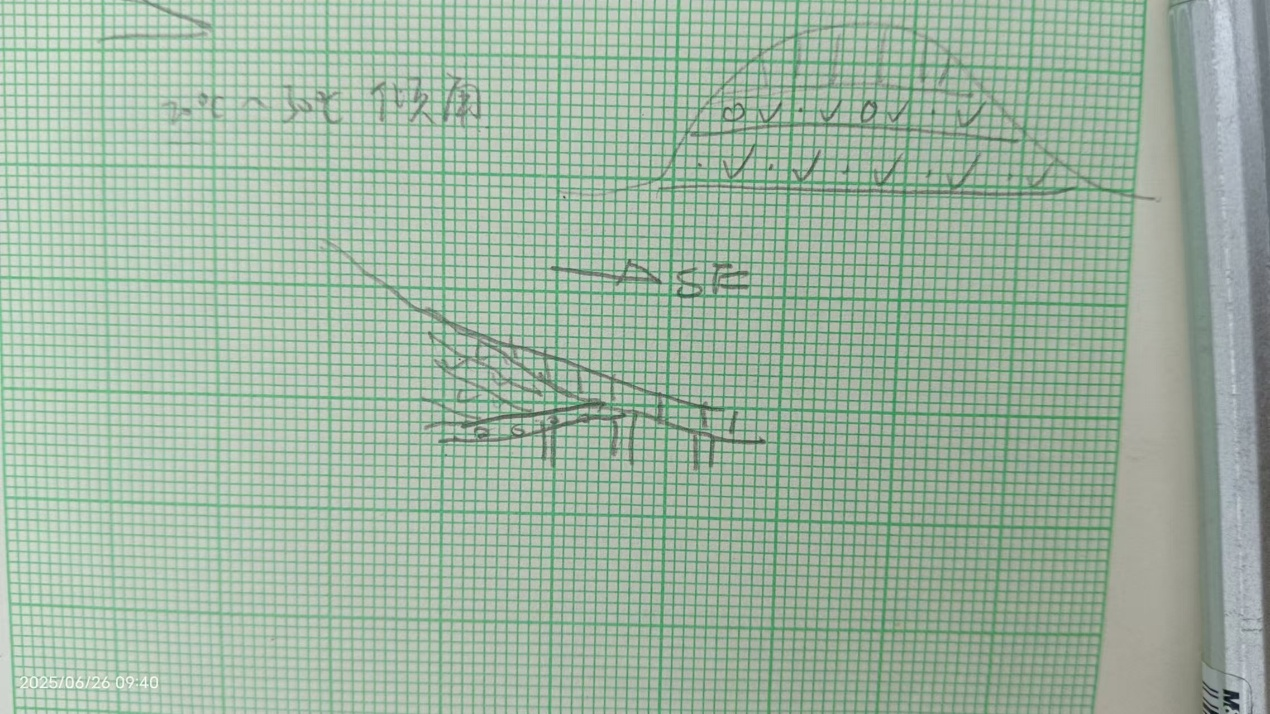 20℃~30℃ 倾角
SE
2025/06/26 09:40